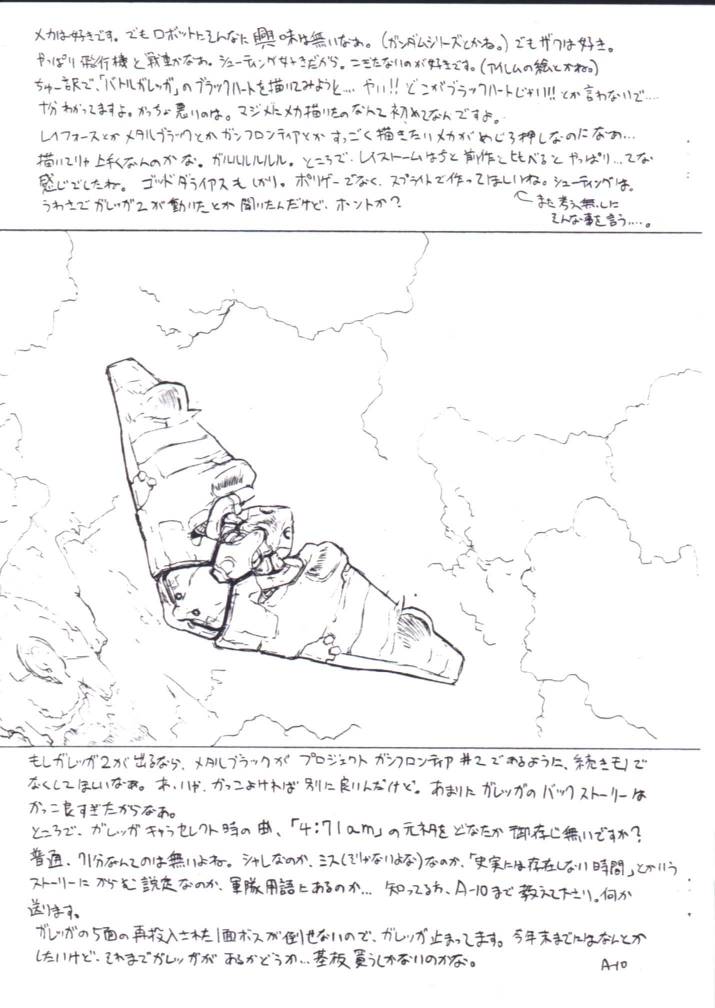 メカは好きです。でもロボットにそんなに興味は無いなあ。(ガンダムシリーズとかね。)でもザクは好き。
やっぱり飛行機と戦車かなあ。シューティング好きだから。こぎたないのが好きです。(アイレムの絵とかね。)
ちゅー訳で、「バトルガレッガ」のブラックハートを描いてみようと…。やい!!どこがブラックハートじゃい!!とか言わないで….
十分わかってますよ。かっちょ悪いのは。マジメにメカ描いたのなんて初めてなんですよ。
レイフォースとかメタルブラックとかガンフロンティアとかすっごく描きたいメカがめじろ押しなのになあ…
描いてりゃ上手くなんのかな。ガルルルルルル。ところで、レイストームはちと前作と比べるとやっぱり…てな
感じでしたね。ゴッドダライアスもしかり。ポリゲーでなく、スプライトで作ってほしいね。シューティングは。
うわさでガレッガ2が動いたとか聞いたんだけど、ホントか?
また考え無しに
そんな事を言う….。
もしガレッガ2が出るなら、メタルブラックがプロジェクトガンフロンティア#2であるように、続きモノで
なくしてほしいなあ。あ、いや、かっこよければ別に良いんだけど。あまりにガレッガのバックストーリーは
かっこ良すぎたからなあ。
ところで、ガレッガキャラセレクト時の曲、「4:71am」の元ネタをどなたか御存じ無いですか?
普通、71分なんてのは無いよね。シャレなのか、ミス(じゃないよな)なのか、「史実には存在しない時間」とかいう
ストーリーにからむ設定なのか、軍隊用語にあるのか… 知ってる方、A-10まで教えて下さい。何か
送ります。
ガレッガの5面の再投入された1面ボスが倒せないので、ガレッガ止まってます。今年末までにはなんとか
したいけど、それまでガレッガがあるかどうか…基板買うしかないのかな。
A-10